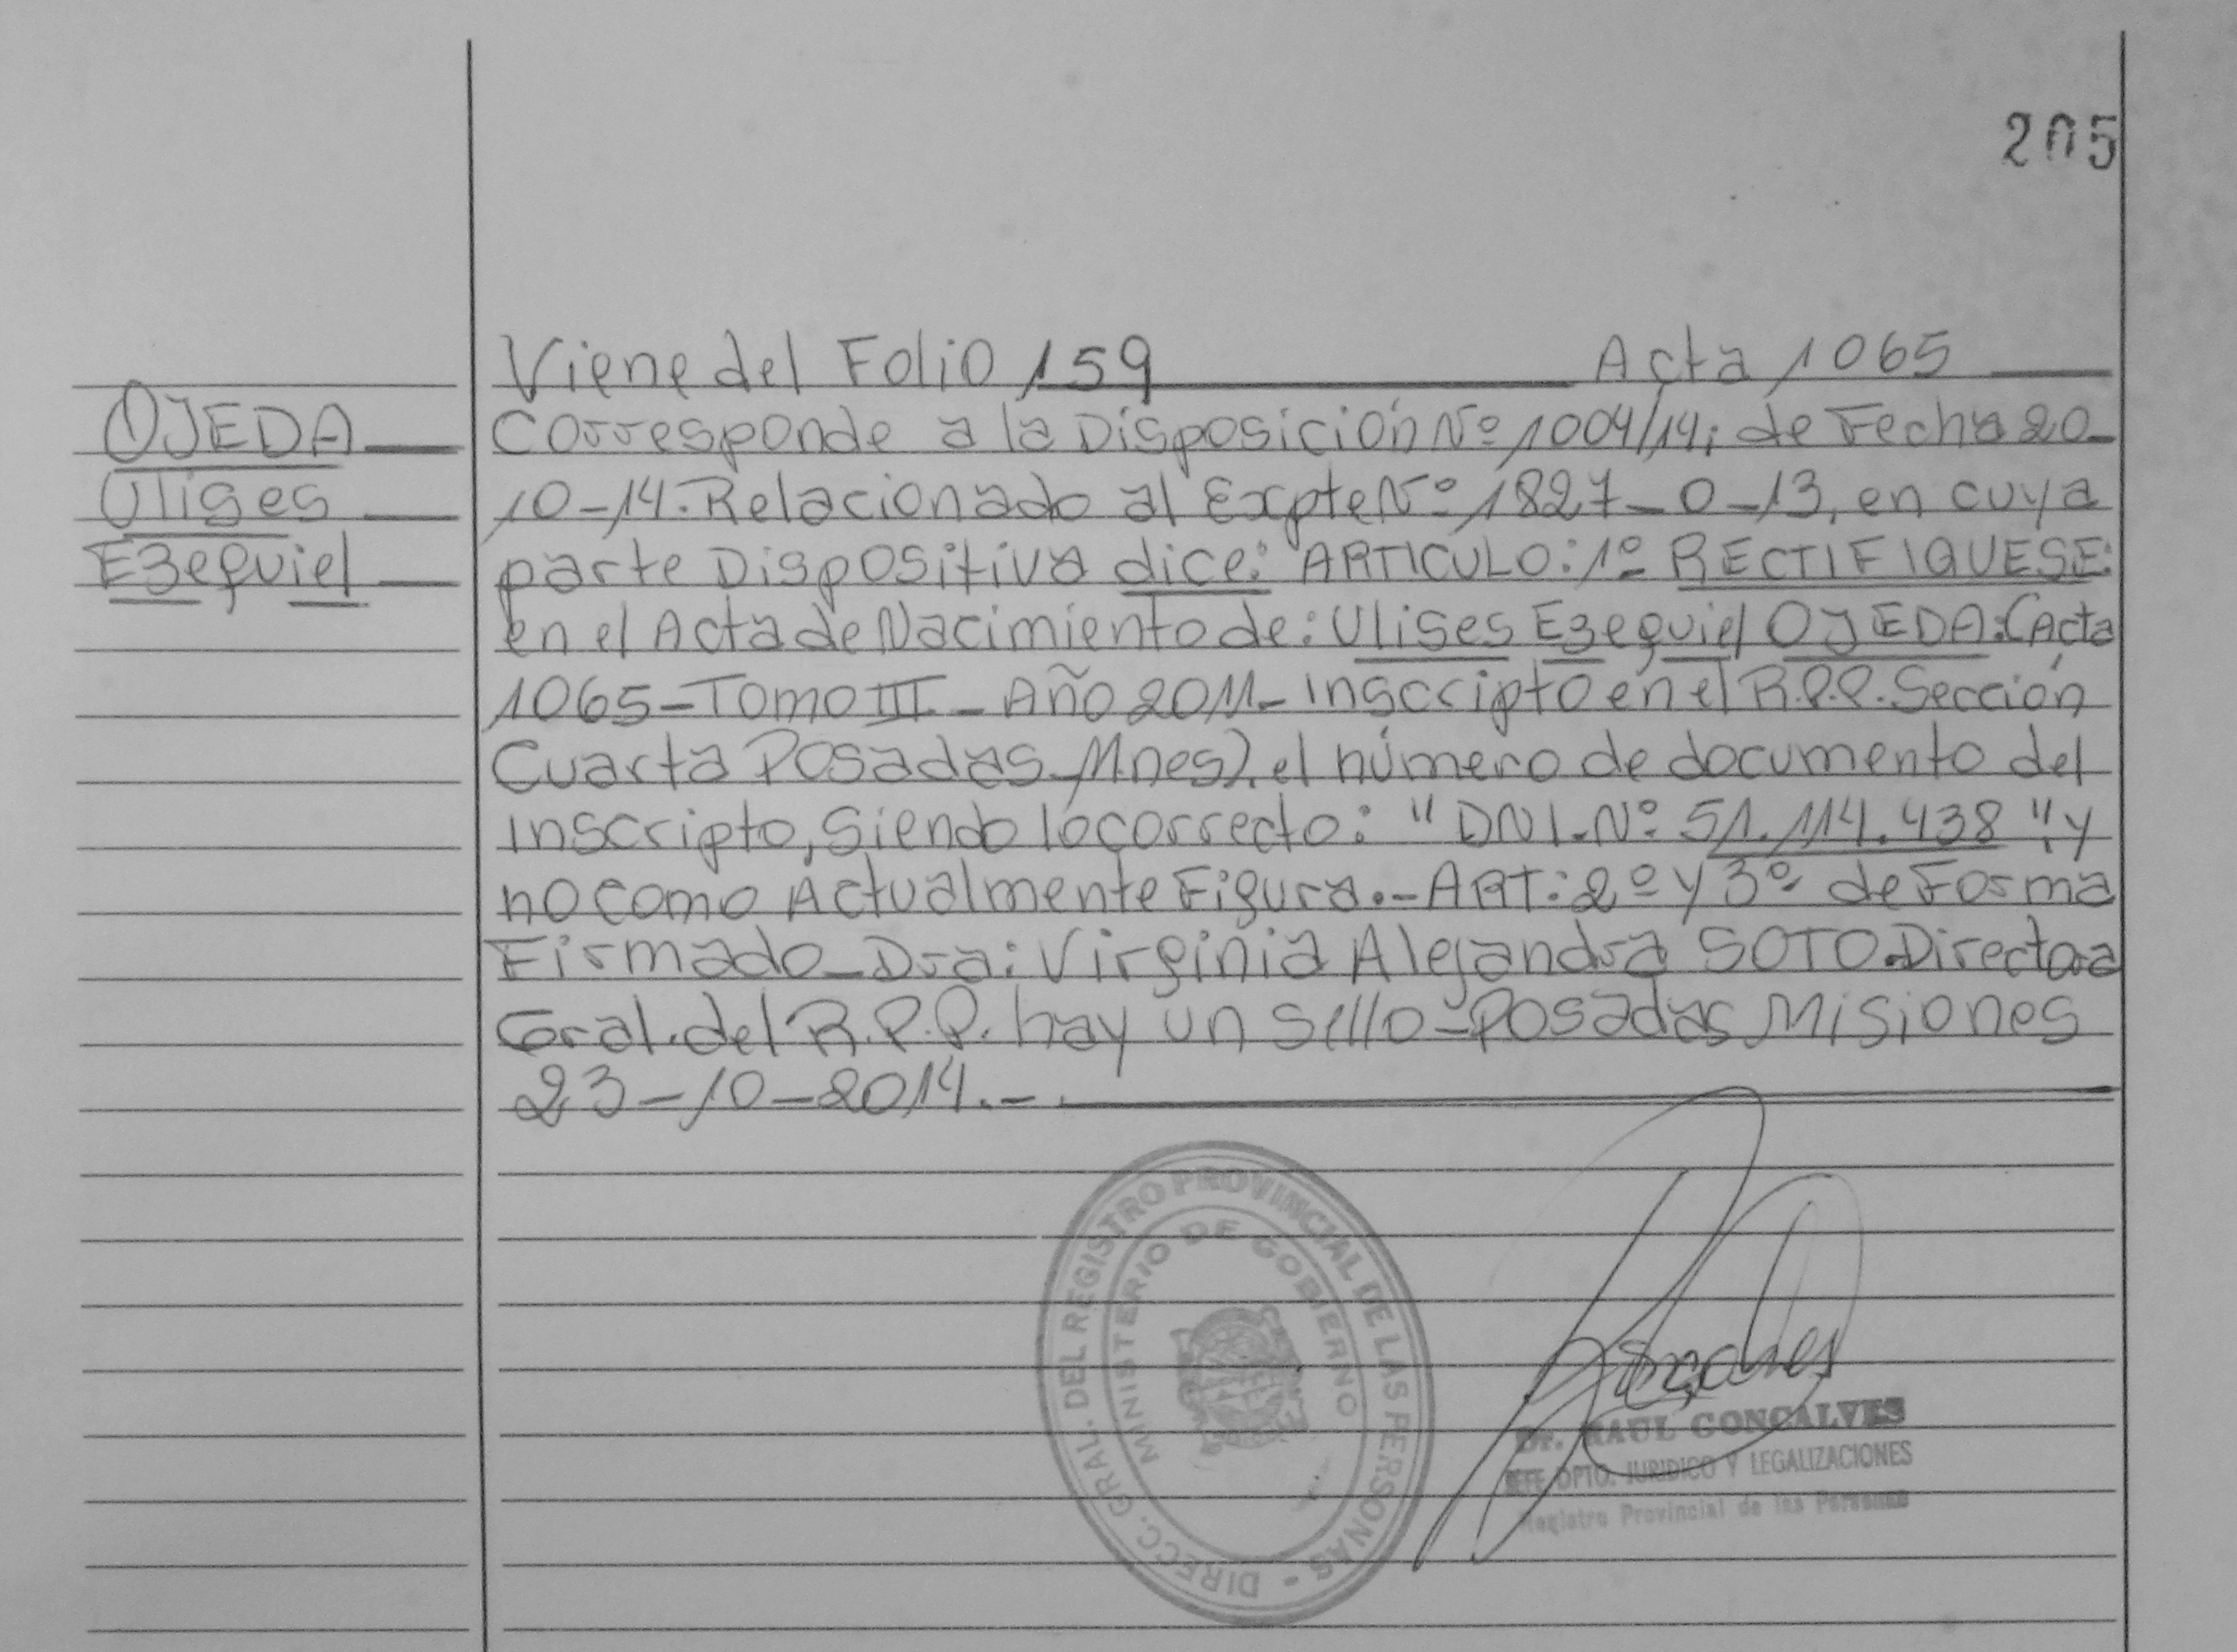 205
Viene del Folio 159 Acta 1065
OJEDA
Ulises
Ezequiel
Corresponde a la Disposición Nº 1004/14; de Fecha 20-
10-14. Relacionado al Expte Nº 1827-0-13, en cuya
parte Dispositiva dice: ARTICULO: 1º RECTIFIQUESE:
en el Acta de Nacimiento de: Ulises Ezequiel OJEDA: (Acta
1065-Tomo III - Año 2011- inscripto en el R.P.P. Sección
Cuarta Posadas-Mnes). el número de documento del
inscripto, Siendo lo correcto: "DNI.Nº 51.114.438" y
no como Actualmente Figura.- ART: 2º y 3º de Forma
Firmado-Dra: Virginia Alejandra SOTO.Directora
Gral. del R.P.P. hay un Sello-Posadas Misiones
23-10-2014.-.
DIRECC. GRAL. DEL REGISTRO PROVINCIAL DE LAS PERSONAS -
MINISTERIO DE GOBIERNO
Gonçalves
Dr. RAUL GONCALVES
JEFE DPTO. JURIDICO Y LEGALIZACIONES
Registro Provincial de las Personas